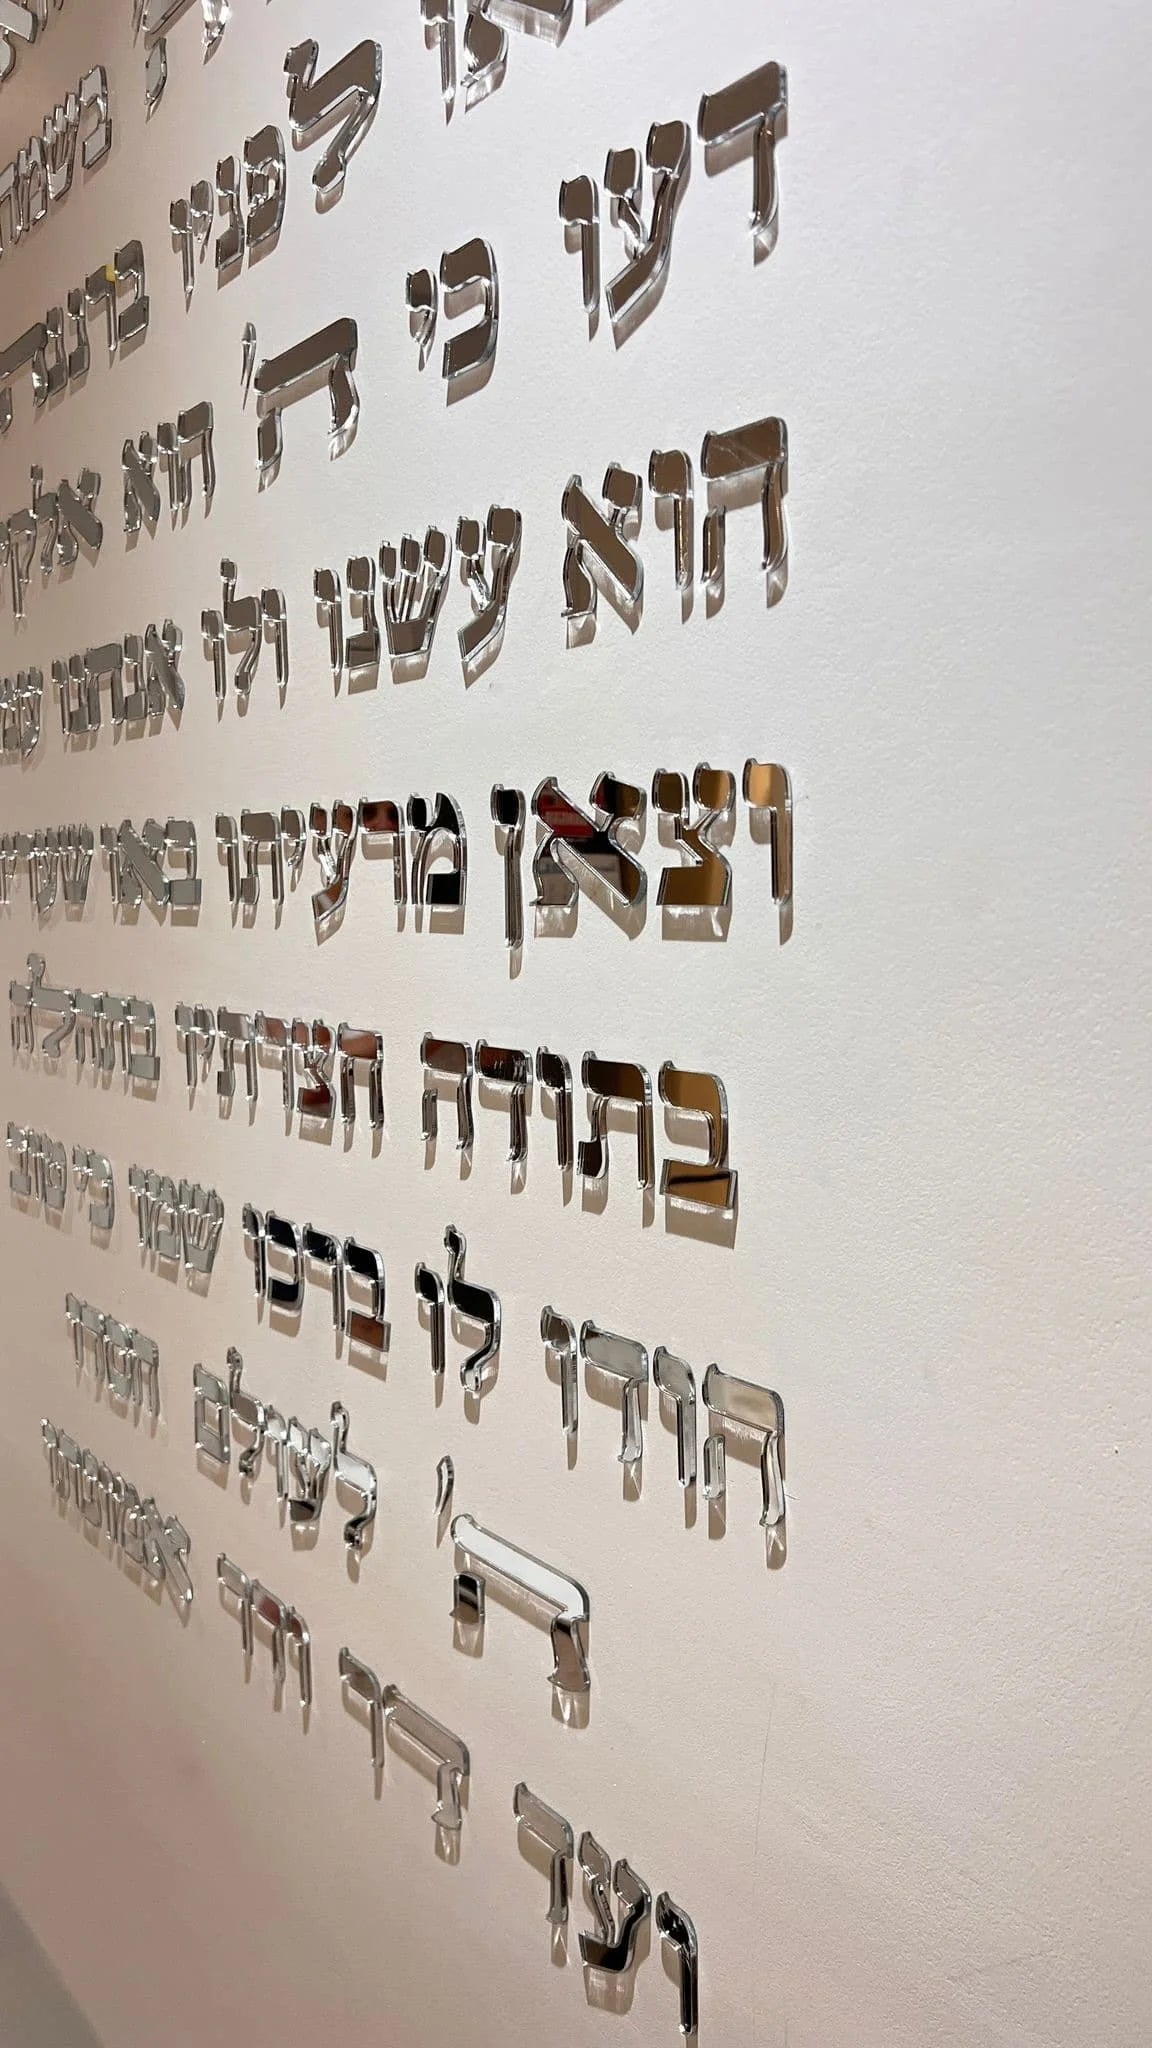 בשמחה
לפניו ברננה
דעו כי ה' הוא אלקי
הוא עשנו ולו אנחנו
וצאן מרעיתו באו שעריו
בתודה חצרתיו בתהלה
הודו לו ברכו שמו כי טוב
ה' לעולם חסדו
ועד דר ודר אמונתו